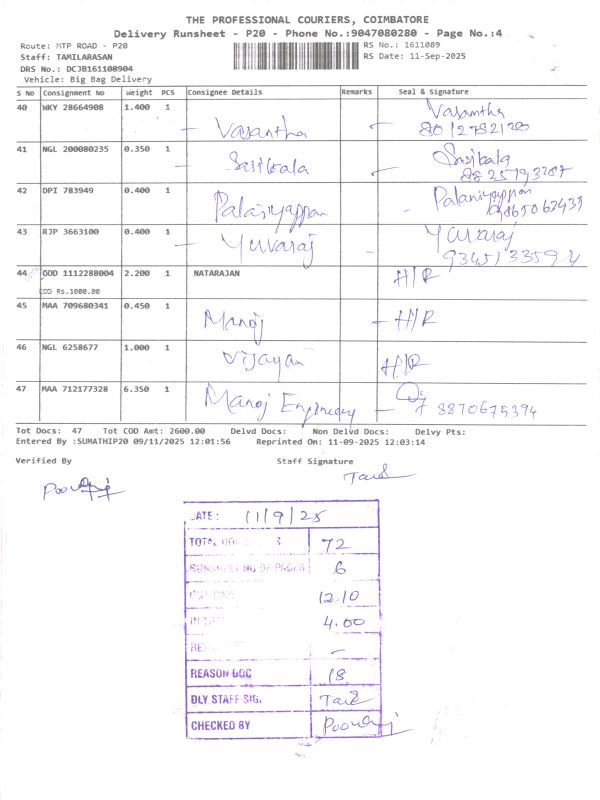 THE PROFESSIONAL COURIERS, COIMBATORE
Delivery Runsheet - P20 - Phone No.:9047080280 - Page No.:4
Route: MTP ROAD - P20 RS No.: 1611089
Staff: TAMILARASAN RS Date: 11-Sep-2025
DRS No.: DCJB161108904
Vehicle: Big Bag Delivery
S No Consignment No Weight PCS Consignee Details Remarks Seal & Signature
40 WKY 28664908 1.400 1 Vasantha Vasantha
41 NGL 200080235 0.350 1 Sasikala Sasikala
42 DPI 783949 0.400 1 Palaniyappan Palaniyappan
9865062433
43 RJP 3663100 0.400 1 Yuvaraj Yuvaraj
44 COD 1112288004 2.200 1 NATARAJAN H/R
COD Rs.1000.00
45 MAA 709680341 0.450 1 Manoj - H/R
46 NGL 6258677 1.000 1 Vijayan H/R
47 MAA 712177328 6.350 1 Manoj - 8870675394
Tot Docs: 47 Tot COD Amt: 2600.00 Delvd Docs: Non Delvd Docs: Delvy Pts:
Entered By :SUMATHIP20 09/11/2025 12:01:56 Reprinted On: 11-09-2025 12:03:14
Verified By Staff Signature
DATE: 11/9/25
TOTAL 72
RUNSHEET NO OF PAGES 6
12.10
4.00
-
REASON DOC 18
DLY STAFF SIG.
CHECKED BY